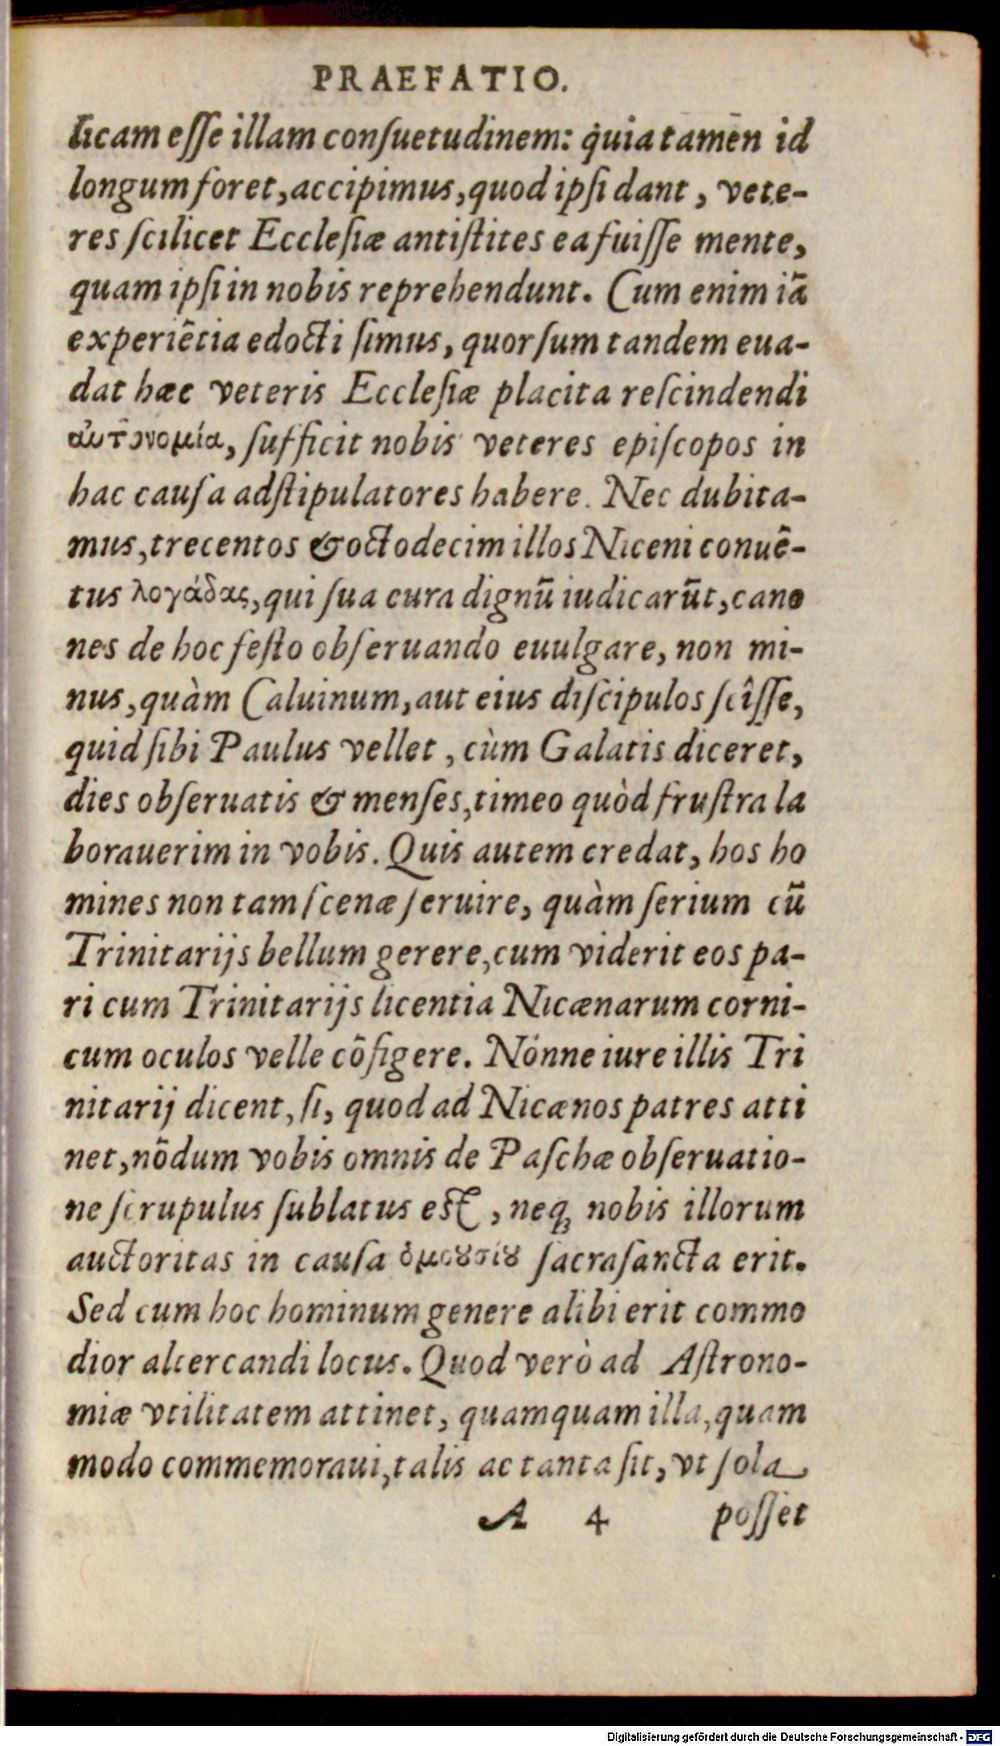 PRAEFATIO.
licam eſſe illam conſuetudinem: quia tamen id
longum foret, accipimus, quod ipſi dant, vete-
res ſcilicet Eccleſiæ antiſtites ea fuiſſe mente,
quam ipſi in nobis reprehendunt. Cum enim iã
experiẽtia edocti ſimus, quorſum tandem eua-
dat hæc veteris Eccleſiæ placita reſcindendi
αὐτονομία, ſufficit nobis veteres epiſcopos in
hac cauſa adſtipulatores habere. Nec dubita-
mus, trecentos & octodecim illos Niceni conuẽ-
tus λογάδας, qui ſua cura dignũ iudicarũt, cano
nes de hoc feſto obſeruando euulgare, non mi-
nus, quàm Caluinum, aut eius diſcipulos ſcîſſe,
quid ſibi Paulus vellet, cùm Galatis diceret,
dies obſeruatis & menſes, timeo quòd fruſtra la
borauerim in vobis. Quis autem credat, hos ho
mines non tam ſcenæ ſeruire, quàm ſerium cũ
Trinitarijs bellum gerere, cum viderit eos pa-
ri cum Trinitarijs licentia Nicænarum corni-
cum oculos velle cõfigere. Nónne iure illis Tri
nitarij dicent, ſi, quod ad Nicænos patres atti
net, nõdum vobis omnis de Paſchæ obſeruatio-
ne ſcrupulus ſublatus eſt, neq; nobis illorum
auctoritas in cauſa ὁμοȣσίȣ ſacraſancta erit.
Sed cum hoc hominum genere alibi erit commo
dior altercandi locus. Quod verò ad Aſtrono-
miæ vtilitatem attinet, quamquam illa, quam
modo commemoraui, talis ac tanta ſit, vt ſola
A 4 poſſet
Digitalisierung gefördert durch die Deutsche Forschungsgemeinschaft - DFG